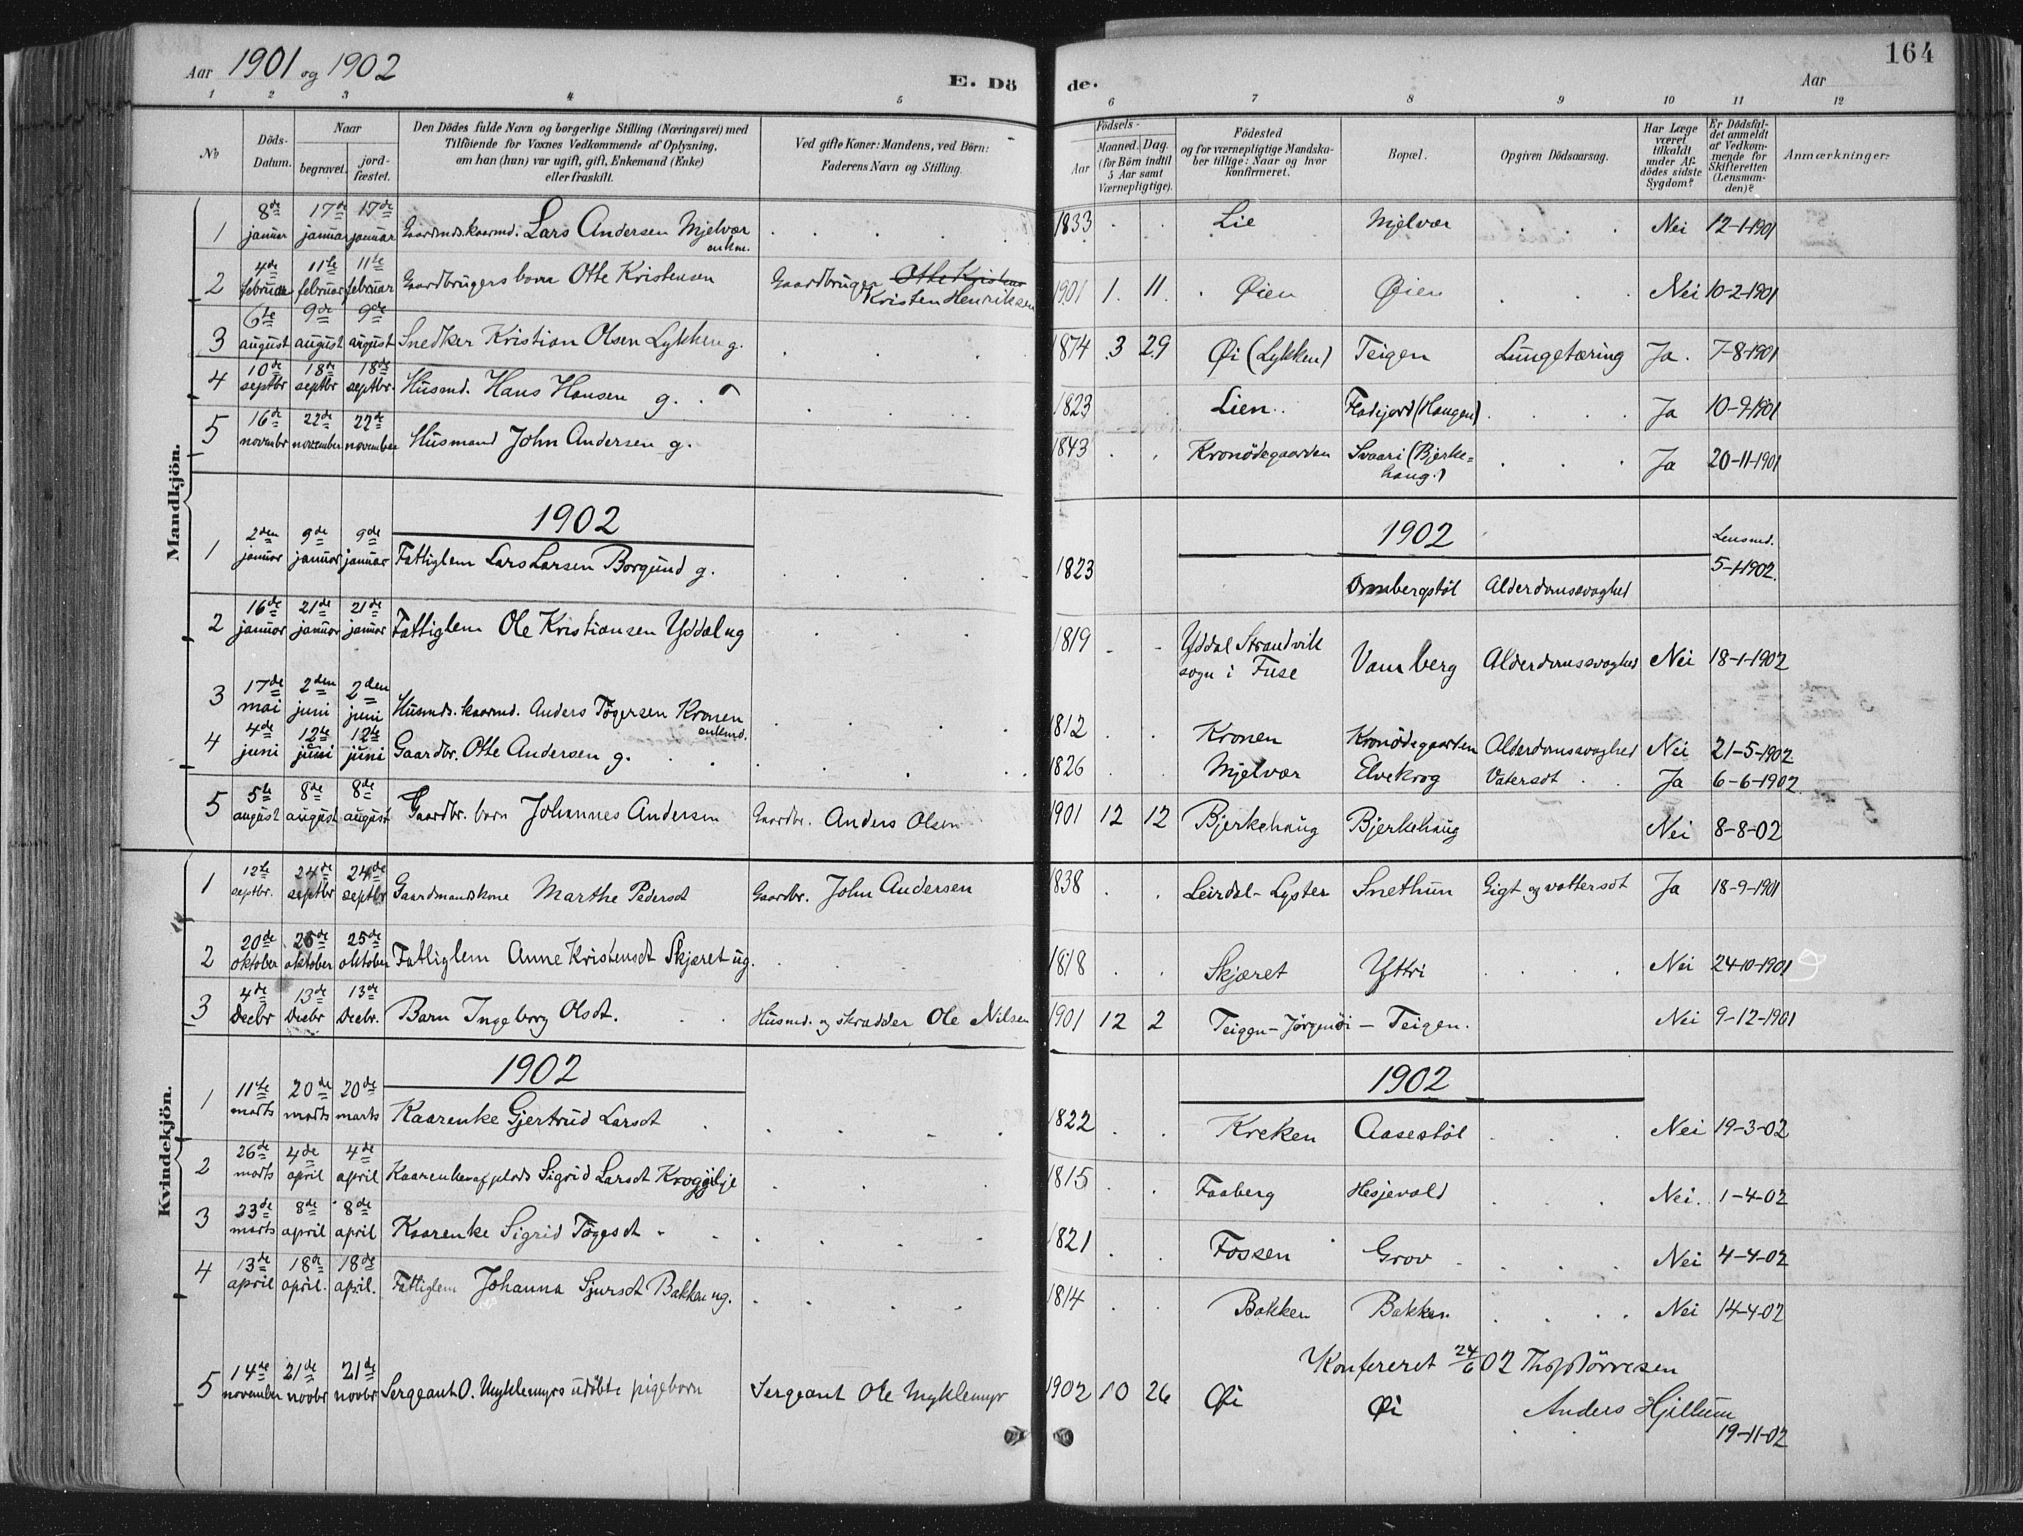 Aar 1901 og 1902
E. Dö
de.
Aar
164
1 2 3 4 5 6 7 8 9 10 11 12
No
Döds-Datum.
Naar
begravet.
jord-fæstet.
Den Dödes fulde Navn og borgerlige Stilling (Næringsvei) med
Tilföiende for Voxnes Vedkommende af Oplysning,
om han (hun) var ugift, gift, Enkemand (Enke)
eller fraskilt.
Ved gifte Koner: Mandens, ved Börn:
Faderens Navn og Stilling.
Födsels-
Aar
Maaned. Dag.
(for Börn indtil
5 Aar samt
Værnepligtige).
Födested
og for værnepligtige Mandska-
ber tillige: Naar og hvor
konfirmeret.
Bopæl.
Opgiven Dödsaarsag.
Har Læge
været
tilkaldt
under Af-
dödes sidste
Sygdom?
Er Dödsfal-
det anmeldt
af Vedkom-
mende for
Skifteretten
(Lensman-
den)?
Anmærkninger.
Mandkjön.
1 8de januar 17de januar 17de januar Gaardmds.kaarmd. Lars Andersen Mjelvær enkm. 1833 Lie Mjelvær Nei 12-1-1901
2 4de februar 11te februar 11te februar Gaardbrugers barn Otte Kristensen Gaardbruger Otte Kristens Kristen Henriksen 1901 1 11 Øien Øien Nei 10-2-1901
3 6te august 9de august 9de august Snedker Kristian Olsen Lykken g. 1874 3 29 Øi (Lykken) Teigen Lungetæring Ja. 7-8-1901
4 10de septbr 18de septbr 18de septbr. Husmd. Hans Hansen g. 1823 Lien Fladjord (Haugen) Ja 10-9-1901
5 16de novembr 22de november 22de november Husmand John Andersen g. 1843 Kronödegaarden Svaari (Bjerke=haug.) Ja 20-11-1901
1902
1902
1 2den januar 9de januar 9de januar Fattiglem Lars Larsen Borgund g. 1823 Ormbergstøl Alderdomssvaghed Lensmd. 5-1-1902.
2 16de januar 21de januar 21de januar Fattiglem Ole Kristiansen Yddal ug 1819 Yddal Strandvik sogn i Fuse Vamberg Alderdomssvaghed Nei 18-1-1902
3 17de mai 2den juni 2den juni Husmds. kaarmd. Anders Tøgersen Kronen enkmd. 1812 Kronen Kronödegaarden Alderdomssvaghed Nei 21-5-1902
4 4de juni 12te juni 12te juni Gaardbr. Otte Andersen g. 1826 Mjelvær Elvekrog Vatersot Ja 6-6-1902.
5 5te august 8de august 8de august Gaardbr. barn Johannes Andersen Gaardbr. Anders Olsen 1901 12 12 Bjerkehaug Bjerkehaug Nei 8-8-02
Kvindekjön.
1 12te septbr. 24de septbr 24de septbr Gaardmandskone Marthe Pedersdt Gaardbr. John Andersen 1838 Leirdal-Lyster Snethun Gigt og vattersot Ja 18-9-1901
2 20de oktober 25de oktober 25de oktober Fattiglem Anne Kristensdt Skjæret ug. 1818 Skjæret Yttri Nei 24-10-1901
3 4de Decbr 13de Decbr 13de Decbr. Barn Ingeborg Olsdt. Husmd. og skrædder Ole Nilsen 1901 12 2 Teigen-Jørgenøi - Teigen. Nei 9-12-1901
1902
1902
1 11te marts 20de marts 20de marts Kaarenke Gjertrud Larsdt 1822 Kreken Aasestøl Nei 19-3-02
2 26de marts 4de april 4de april Kaarenke Sigrid Larsdt 1815 Faaberg Hesjevold Nei. 1-4-02
3 23de marts 8de april 8de april Kaarenke Sigrid Tøgesdt 1821 Fossen Grov Nei 4-4-02
4 13de april 18de april. 18de april. Fattiglem Johanna Sjursdt Bakken ug. 1814 Bakken Bakken Nei 14-4-02
Konfereret 24/6 02
5 14de november 21de novbr 21de novbr Sergeant O. Myklemyrs udøbte pigebarn Sergeant Ole Myklemyr 1902 10 26 Øi Øi Anders Hjellum 19-11-02